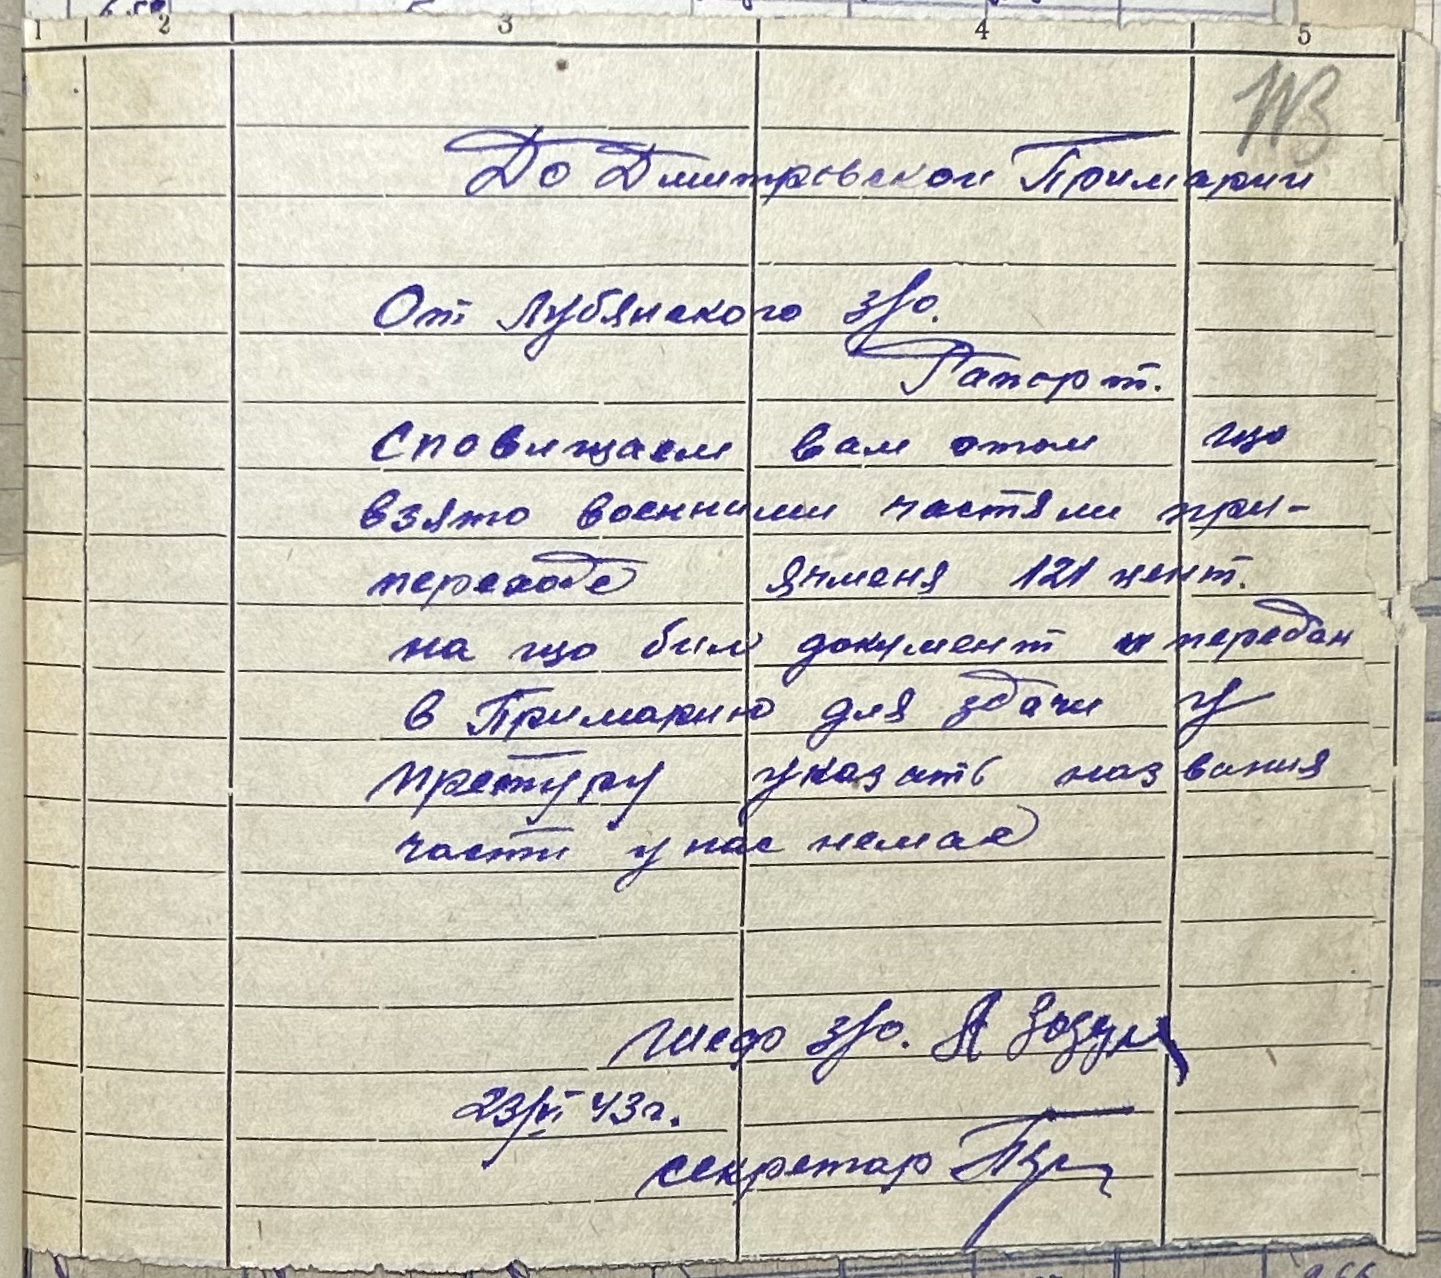 1 2 3 4 5
До Дмитровскои Примарии
От Лубянского з/о.
Рапорт.
Сповищаем вам отом що
взято военними частями при-
переходе ячменя 121 цент.
на що бил документ и передан
в Примарию для здачи у
претуру указать названия
части у нас немае
Шеф з/о. А
23/VI 43 г.
секретар